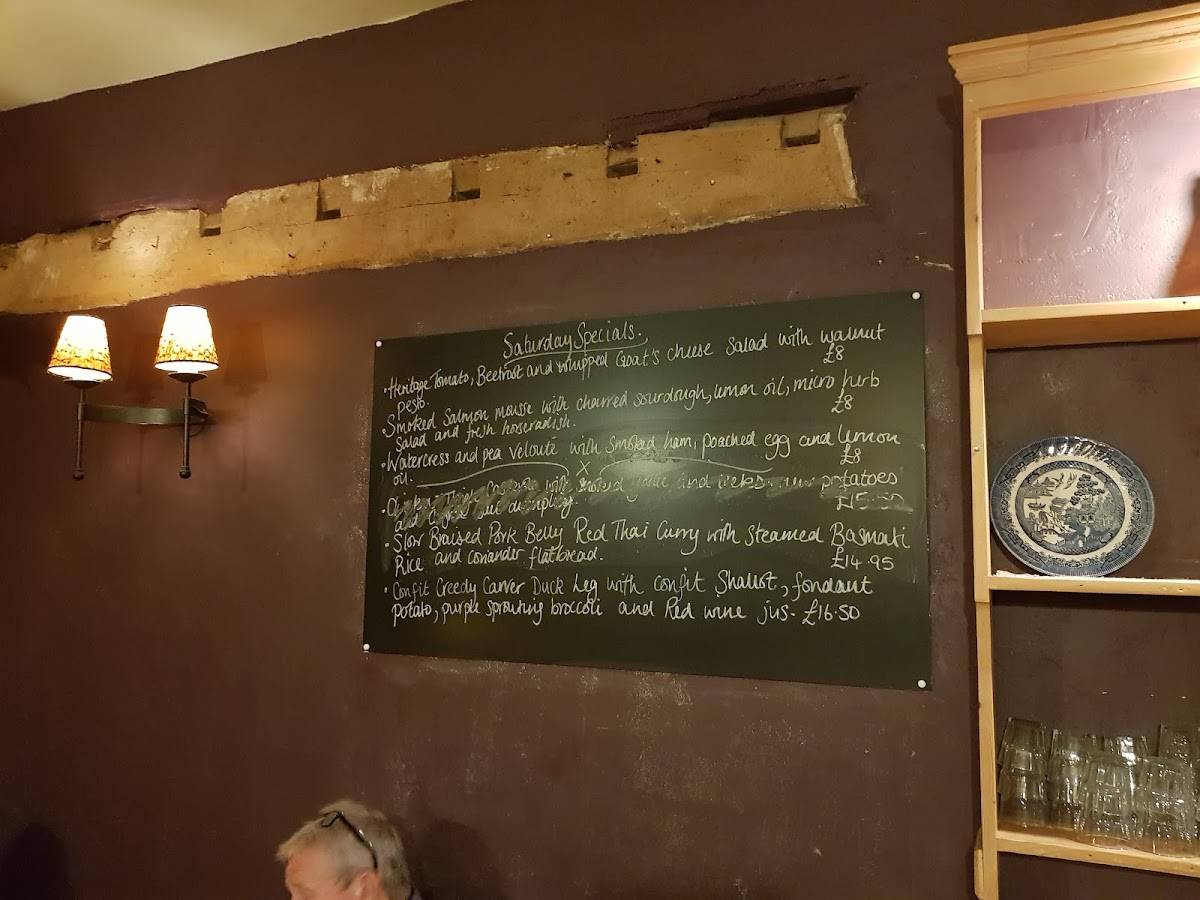 Saturday Specials.
• Heritage Tomato, Beetroot and whipped Goat's cheese salad with walnut
Pesto. £8
• Smoked Salmon mousse with charred sourdough, lemon oil, micro herb
Salad and fresh horseradish. £8
• Watercress and pea Velouté with smoked ham, poached egg and lemon
oil. £8
X
with smoked garlic and leeks new potatoes
and dumpling. £15.50
• Slow Braised Pork Belly Red Thai Curry with Steamed Basmati
Rice and coriander flatbread. £14.95
• Confit Greedy Carver Duck Leg with confit Shallot, fondant
Potato, purple sprouting broccoli and Red wine jus. £16.50